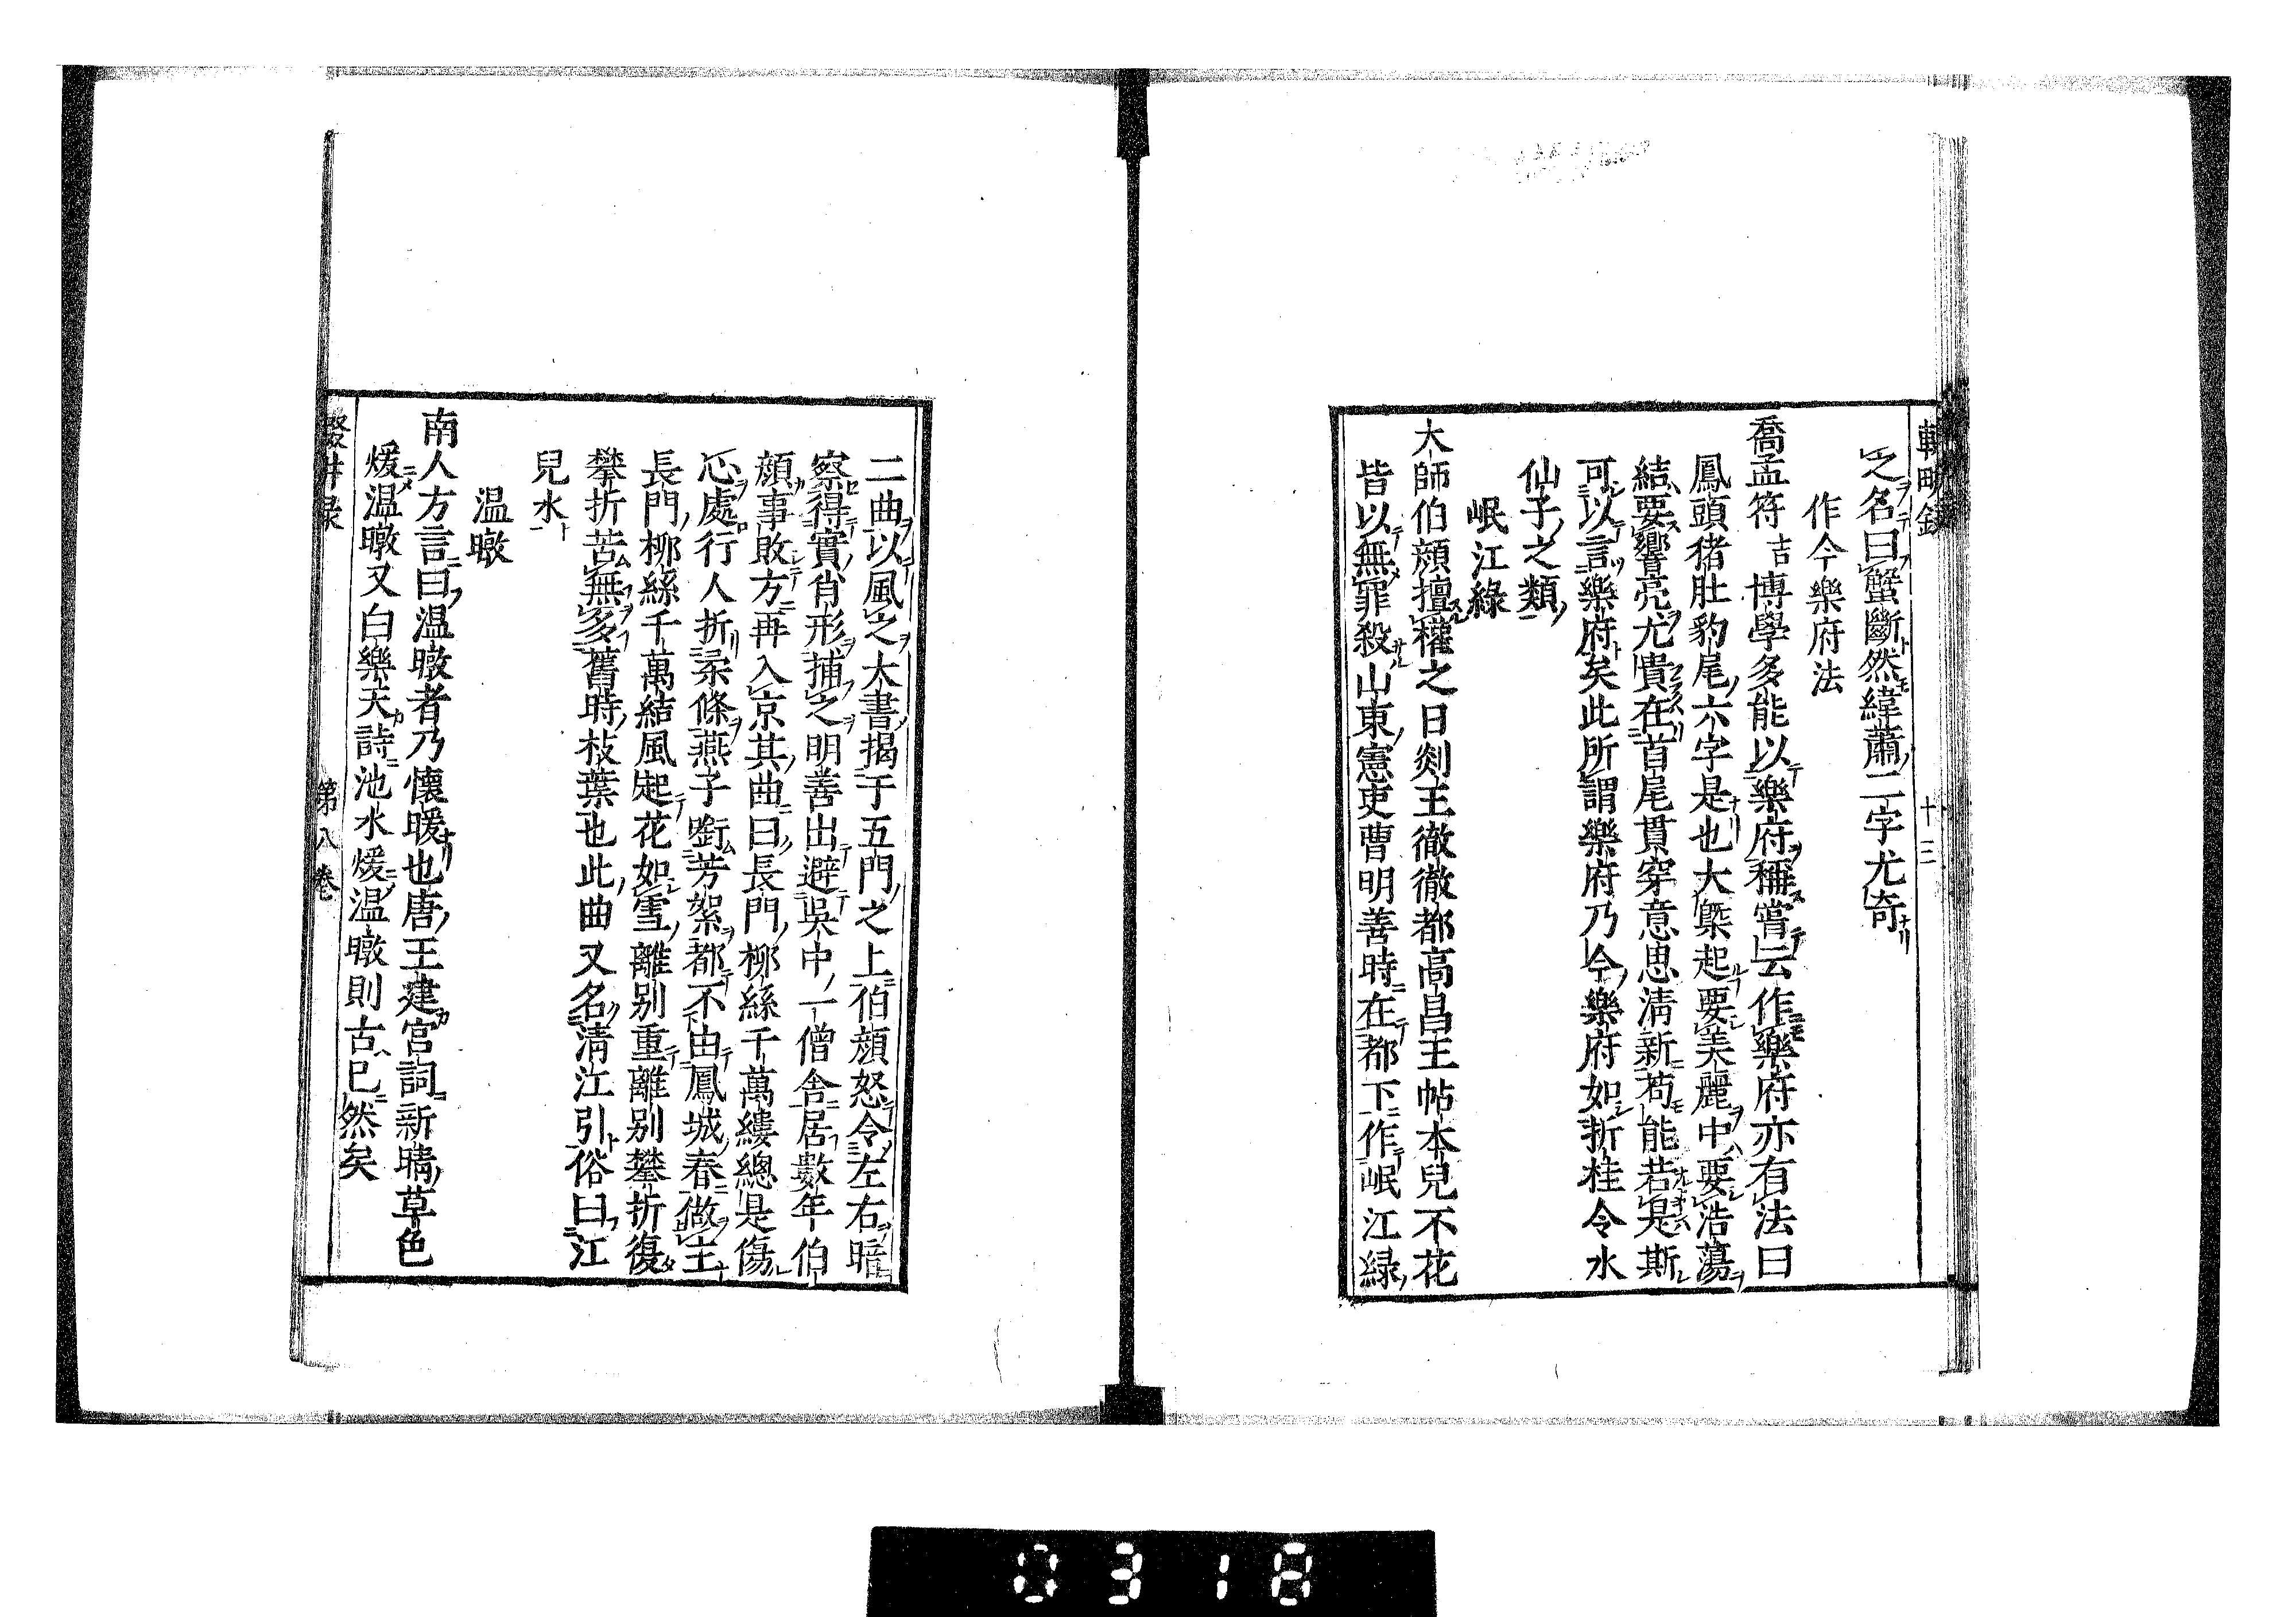 輟畊録 十三
之名曰蟹斷然緯蕭二字尤奇
作今樂府法
喬孟符吉博學多能以樂府稱嘗云作樂府亦有法曰
鳳頭猪肚豹尾六字是也大槩起要美麗中要浩蕩
結要響亮尤貴在首尾貫穿意思清新苟能若是斯
可以言樂府矣此所謂樂府乃今樂府如折桂令水
仙子之類
岷江綠
大師伯顔擅權之日剡王徹徹都高昌王帖木兒不花
皆以無罪殺山東憲吏曹明善時在都下作岷江緑
二曲以風之大書揭于五門之上伯顔怒令左右暗
察得實肖形捕之明善出避吳中一僧舍居數年伯
顔事敗方再入京其曲曰長門柳絲千萬縷總是傷
心處行人折柔條燕子銜芳絮都不由鳳城春做主
長門柳絲千萬結風起花如雪離别重離别攀折復
攀折苦無多舊時枝葉也此曲又名清江引俗曰江
兒水
温暾
南人方言曰温暾者乃懐暖也唐王建宫詞新晴草色
煖温暾又白樂天詩池水煖温暾則古已然矣
輟畊录 第八巻
0318